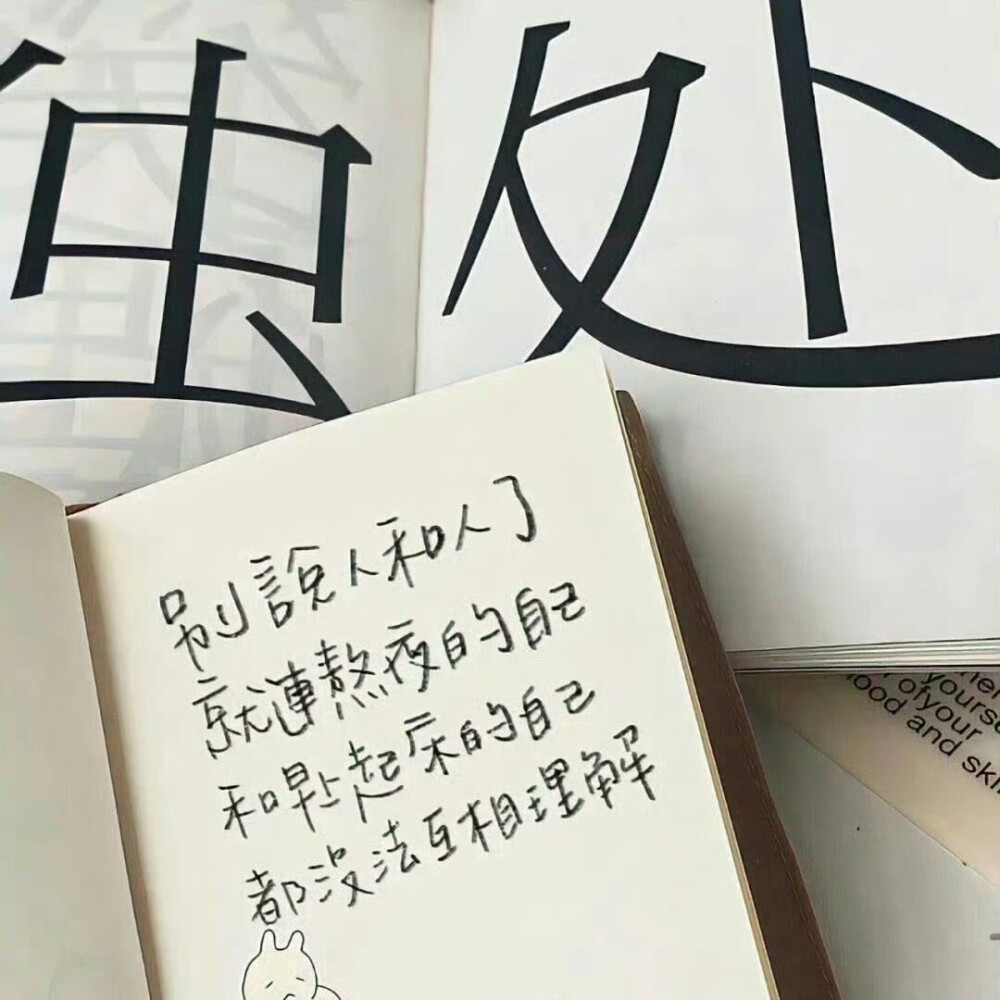 独处
別說人和人了
就連熬夜的自己
和早上起床的自己
都沒法互相理解
yourse
of your
ood and ski